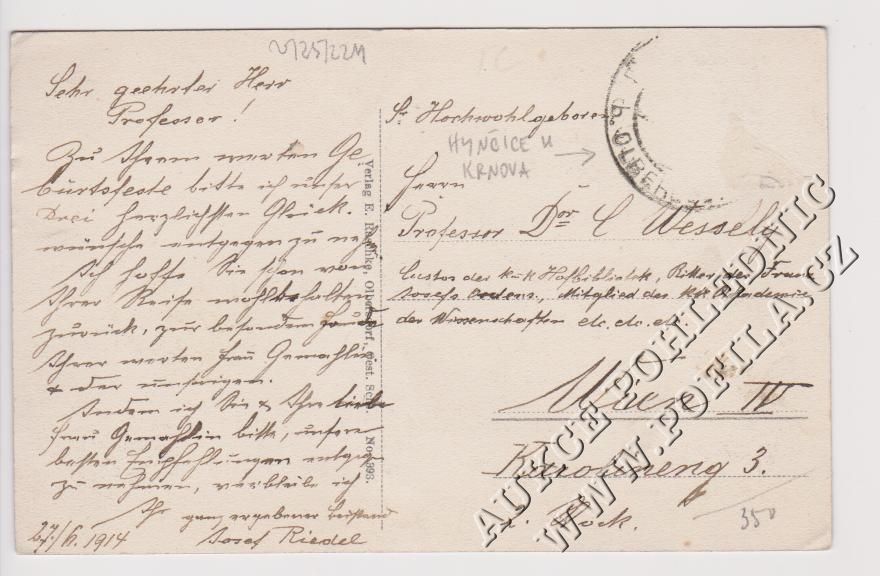 Sehr geehrter Herr
Professor!
Zu Ihrem werten Ge
burtsfeste bitte ich unser
Drei herzlichsten Glück.
wünsche entgegen zu
Ich hoffe Sie schon von
Ihrer Reise wohlbehalten
zurück, zur besondern
Ihrer werten Frau Gemahlin
& der unsrigen.
Indem ich Sie & Ihre liebe
Frau Gemahlin bitte, unsere
besten Empfehlungen
zu nehmen, verbleibe ich
Ihr ganz ergebener
27./6. 1914 Josef Riedel
Verlag E. Raschke, Olbersdorf, Oest. No. 393.
Sr Hochwohlgeboren
HYNČICE U
KRNOVA
→
Herrn
Professor Dor C Wessely
Custos der k.k. Hofbibliothek, Ritter des Franz
Josefs Ordens, Mitglied der KK Akademie
der Wissenschaften etc. etc. etc
Wien IV
3.
Stock.
350
AUKCE POHLEDNIC
WWW.POFILA.CZ